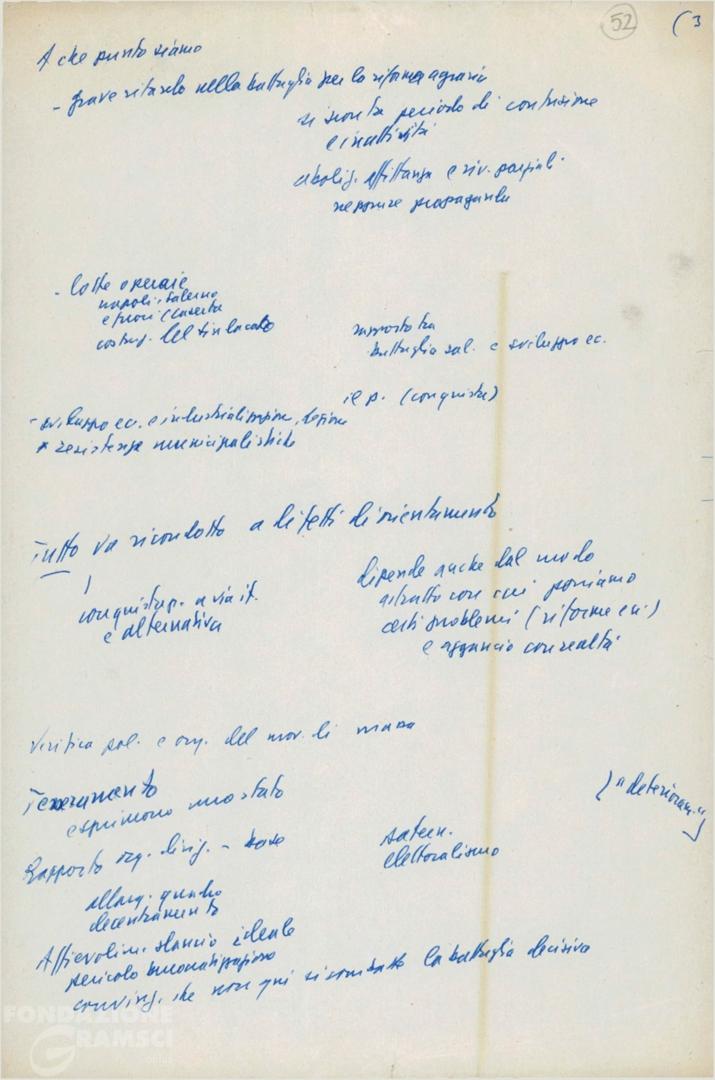 52
(3
A che punto siamo
- grave ritardo nella battaglia per la riforma agraria
si sconta periodo di confusione
e inattività
aboliz. affittanza e riv. parziali
neppure propaganda
- lotte operaie
napoli, salerno
e fuori (caserta
costruz. del sindacato
rapporto tra
battaglia sal. e sviluppo ec.
(conquista)
- sviluppo ec. e industrializzazione, regione
resistenze municipalistiche
Tutto va ricondotto a difetti di orientamento
conquista p. a via it.
e alternativa
dipende anche dal modo
astratto con cui poniamo
certi problemi (riforme ecc)
e aggancio con realtà
Verifica pol. e org. del mov. di massa
Tesseramento
esprimono uno stato
("deterioram.")
Rapporto org. dirig. - base
elettoralismo
allarg. quadro
decentramento
Affievolim. slancio ideale
pericolo burocratizzazione
convinz. che non qui si combatte la battaglia decisiva
FONDAZIONE
GRAMSCI